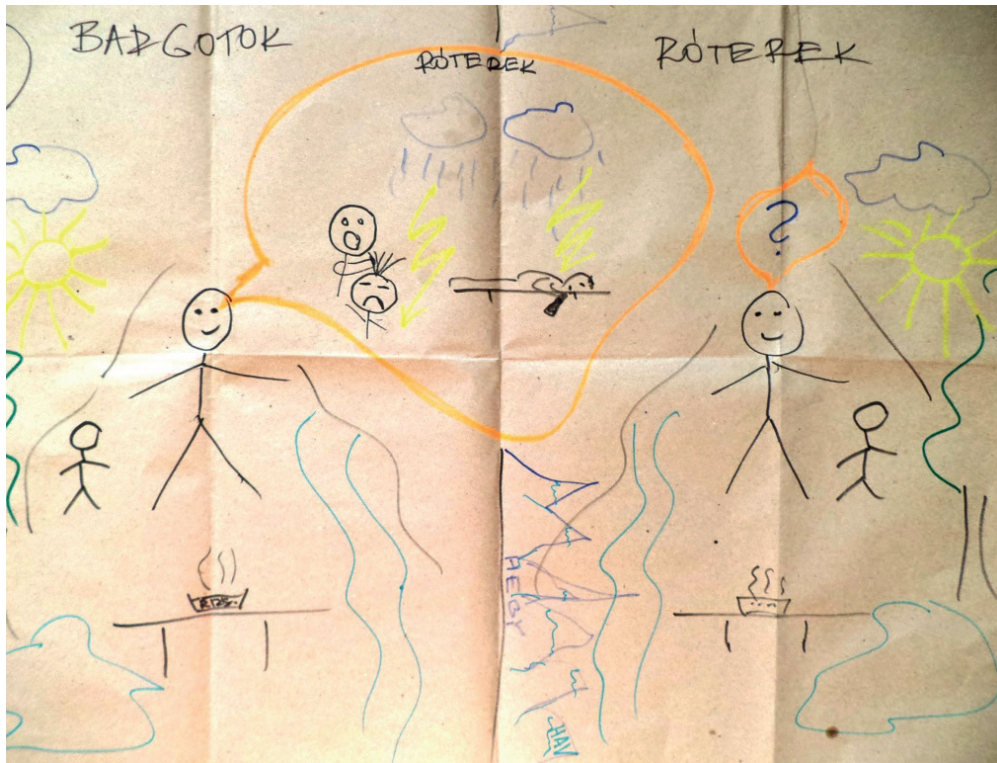 BADGOTOK
RÓTEREK
RÓTEREK
?
HEGY
HAV